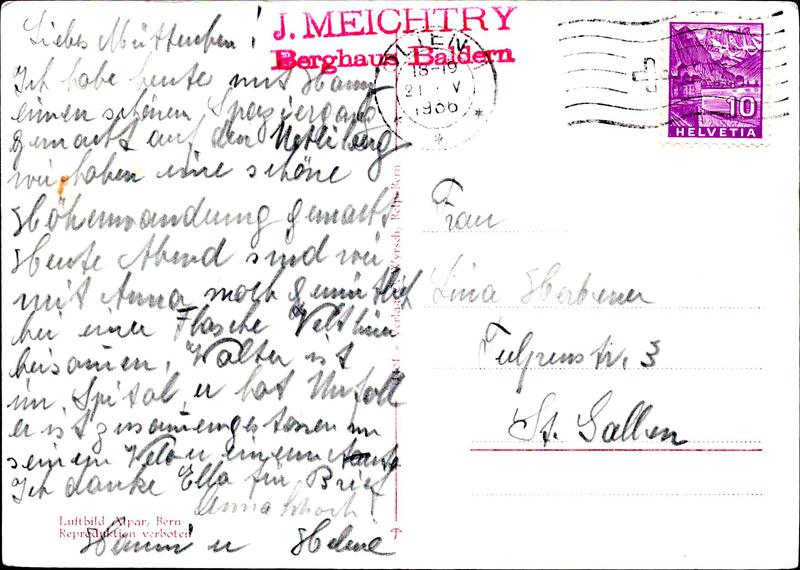 Liebes Mütterchen!
Ich habe heute mit Hanni
einen schönen Spaziergang
gemacht auf den Uetliberg
wir haben eine schöne
Höhenwanderung gemacht
Heute Abend sind wir
mit Anna noch gemütlich
bei einer Flasche Veltliner
beisamen. Walter ist
im Spital, er hat Unfall
er ist zusamengestossen
seinem Velo u einem Auto
Ich danke Ella für Brief
Anna Schoch
Hanni u Helene
Luftbild Alpar, Bern
Reproduktion verboten
J. MEICHTRY
Berghaus Baldern
18-19
21 V
1936
10
HELVETIA
Wyrsch, Bern
Frau
Lina Herbener
Tulpenstr. 3
St. Gallen